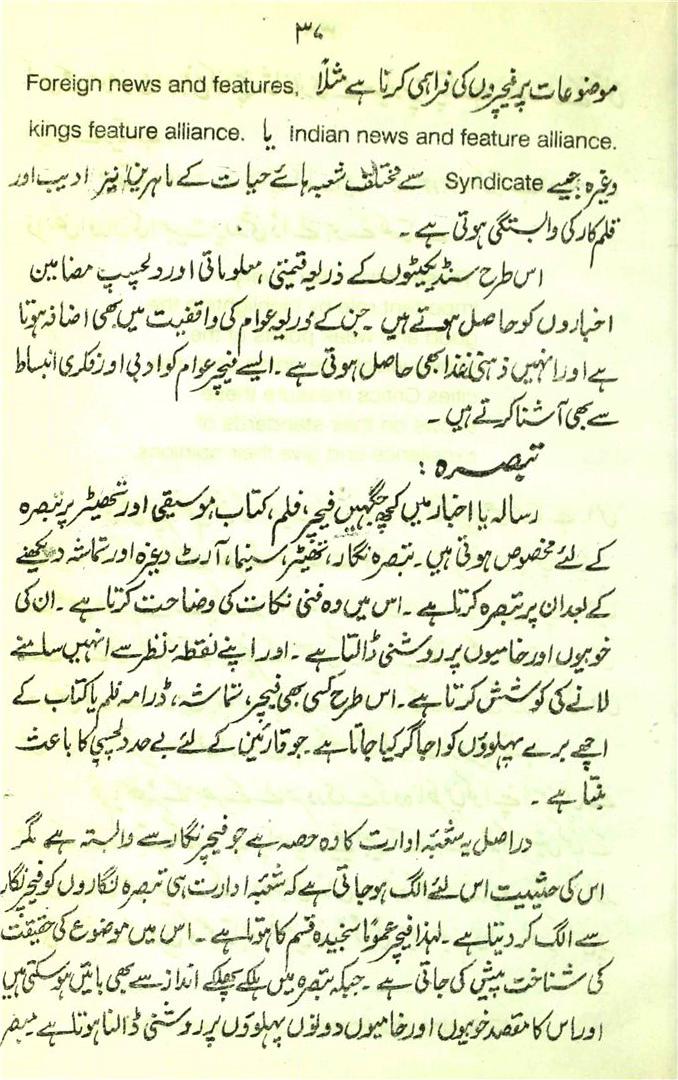 ۳۷
موضوعات پر فیچروں کی فراہمی کرنا ہے مثلاً Foreign news and features,
kings feature alliance. یا Indian news and feature alliance.
وغیرہ جیسے Syndicate سے مختلف شعبہ ہائے حیات کے ماہرین نیز ادیب اور
قلم کار کی وابستگی ہوتی ہے۔
اس طرح سنڈیکیٹوں کے ذریعہ قیمتی، معلوماتی اور دلچسپ مضامین
اخباروں کو حاصل ہوتے ہیں ۔ جن کے ذریعہ عوام کی واقفیت میں بھی اضافہ ہوتا
ہے اور انہیں ذہنی غذا بھی حاصل ہوتی ہے ۔ ایسے فیچر عوام کو ادبی اور فکری انبساط
سے بھی آشنا کرتے ہیں ۔
تبصرہ :
رسالہ یا اخبار میں کچھ جگہیں فیچر، فلم، کتاب موسیقی اور تھیٹر پر تبصرہ
کے لئے مخصوص ہوتی ہیں ۔ تبصرہ نگار، تھیٹر، سینما، آرٹ وغیرہ اور تماشہ دیکھنے
کے بعد ان پر تبصرہ کرتا ہے ۔ اس میں وہ فنی نکات کی وضاحت کرتا ہے ۔ ان کی
خوبیوں اور خامیوں پر روشنی ڈالتا ہے ۔ اور اپنے نقطۂ نظر سے انہیں سامنے
لانے کی کوشش کرتا ہے ۔ اس طرح کسی بھی فیچر، تماشہ، ڈرامہ فلم یا کتاب کے
اچھے برے پہلوؤں کو اجاگر کیا جاتا ہے ۔ جو قارئین کے لئے بے حد دلچسپی کا باعث
بنتا ہے ۔
در اصل یہ شعبۂ ادارت کا وہ حصہ ہے جو فیچر نگار سے وابستہ ہے مگر
اس کی حیثیت اس لئے الگ ہو جاتی ہے کہ شعبۂ ادارت ہی تبصرہ نگاروں کو فیچر نگار
سے الگ کر دیتا ہے ۔ لہذا فیچر عموماً سنجیدہ قسم کا ہوتا ہے ۔ اس میں موضوع کی حقیقت
کی شناخت پیش کی جاتی ہے ۔ جبکہ تبصرہ میں ہلکے پھلکے انداز سے بھی باتیں ہو سکتی ہیں
اور اس کا مقصد خوبیوں اور خامیوں دونوں پہلوؤں پر روشنی ڈالنا ہوتا ہے مبصر